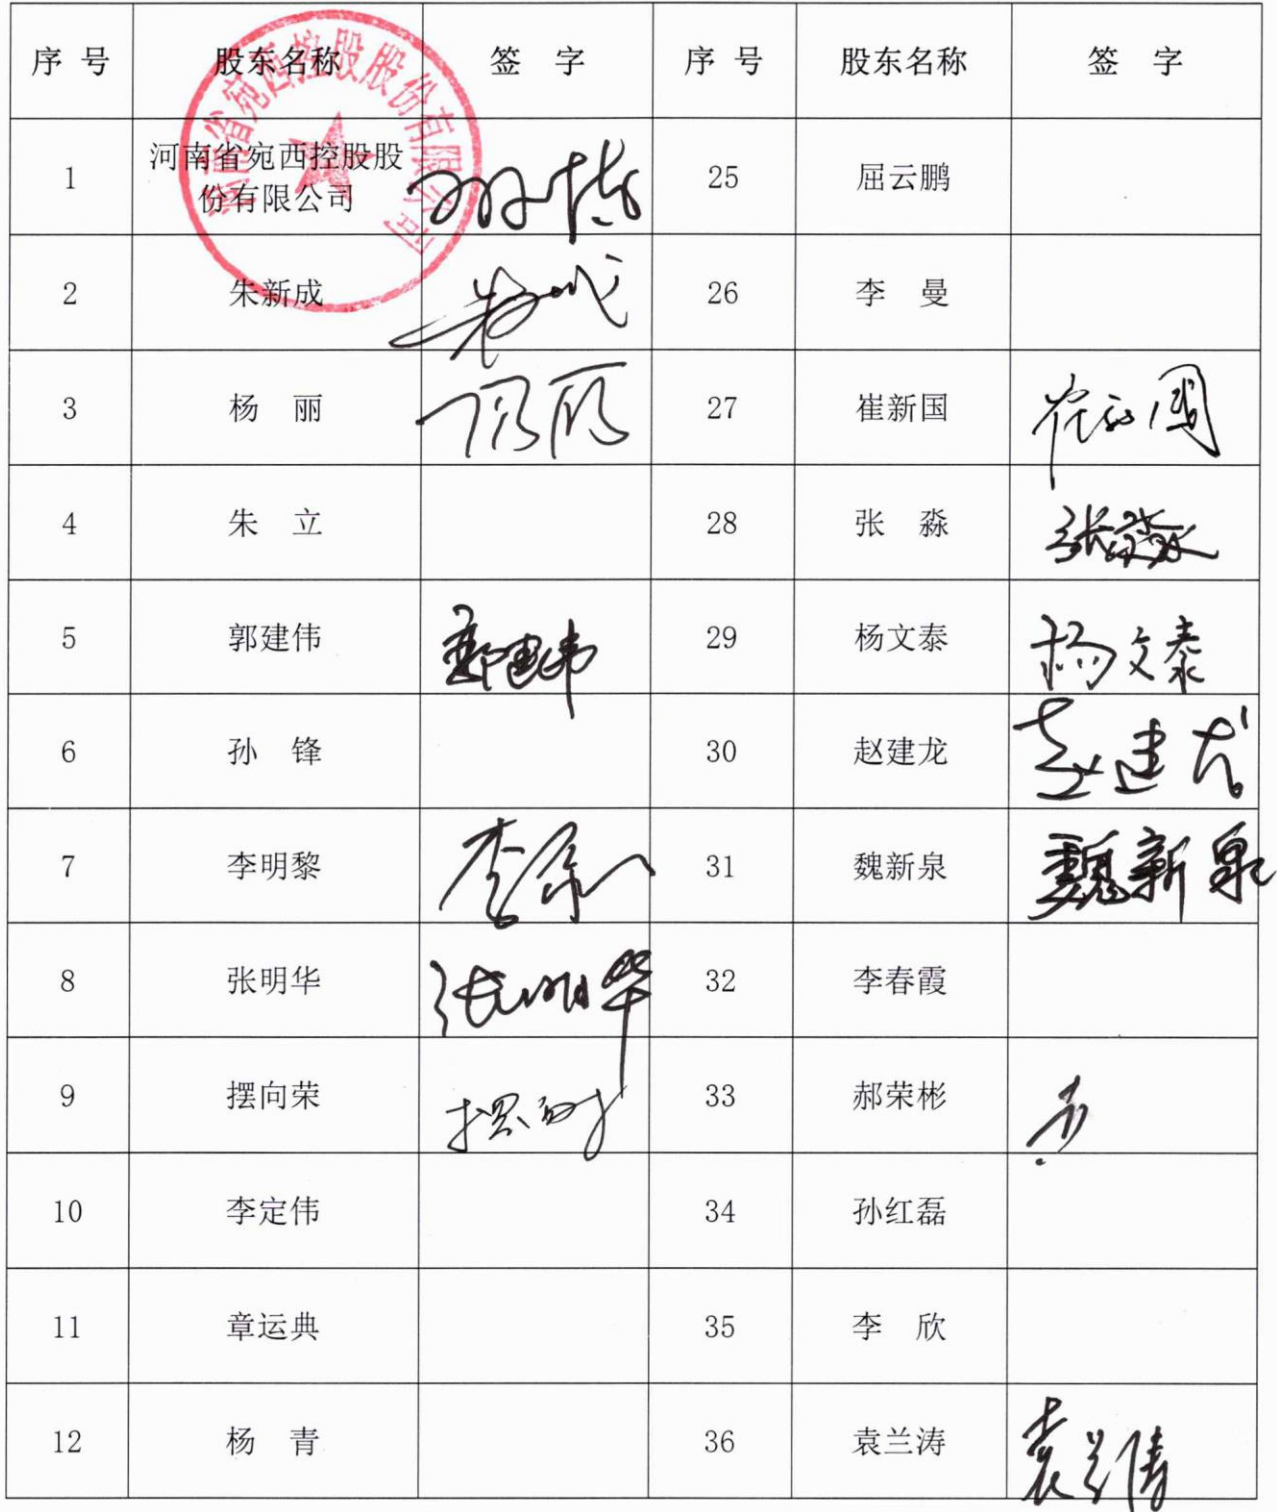 序号 股东名称 签字 序号 股东名称 签字
河南省宛西控股股份有限公司
1 河南省宛西控股股 25 屈云鹏
份有限公司
2 朱新成 26 李曼
3 杨丽 杨丽 27 崔新国 崔新国
4 朱立 28 张淼 张淼
5 郭建伟 郭建伟 29 杨文泰 杨文泰
6 孙锋 30 赵建龙 赵建龙
7 李明黎 31 魏新泉 魏新泉
8 张明华 张明华 32 李春霞
9 摆向荣 33 郝荣彬
10 李定伟 34 孙红磊
11 章运典 35 李欣
12 杨青 36 袁兰涛 袁兰涛